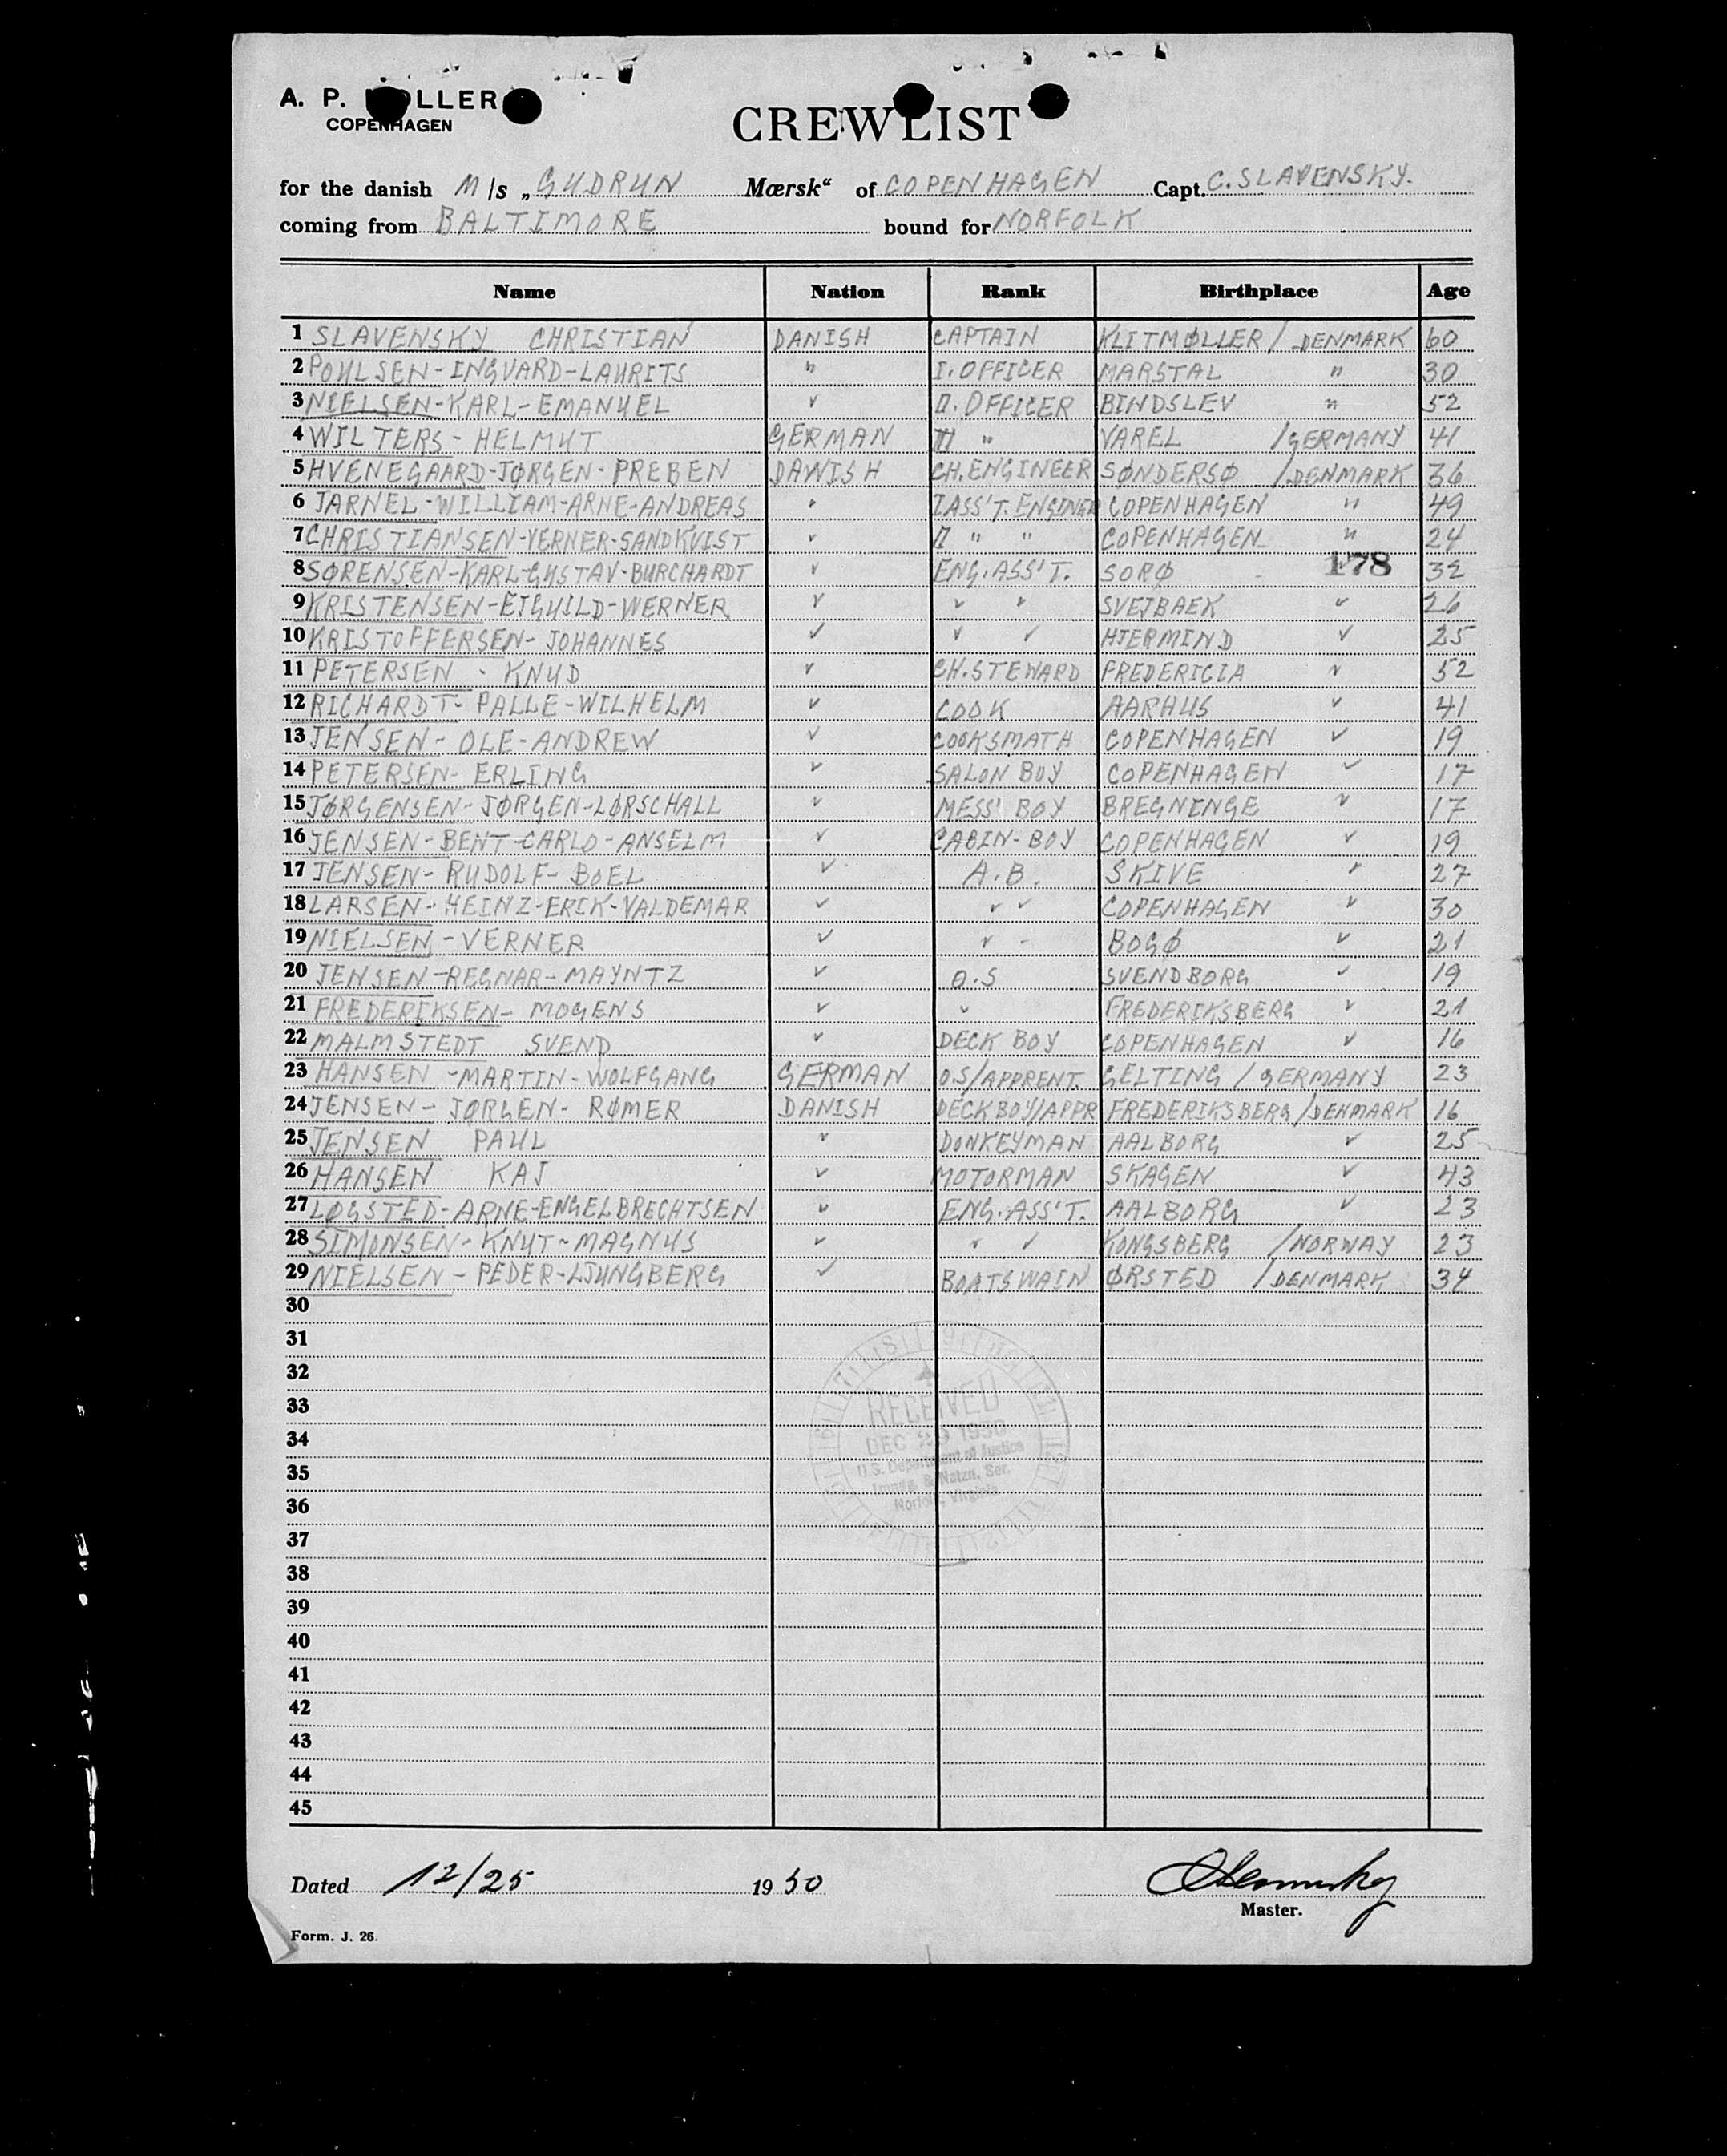 A. P. MØLLER
COPENHAGEN
CREWLIST
for the danish M/s „GUDRUN Mærsk“ of COPENHAGEN Capt. C. SLAVENSKY.
coming from BALTIMORE bound for NORFOLK
Name Nation Rank Birthplace Age
1 SLAVENSKY CHRISTIAN DANISH CAPTAIN KLITMØLLER / DENMARK 60
2 POULSEN-INGVARD-LAURITS " I. OFFICER MARSTAL " 30
3 NIELSEN-KARL-EMANUEL " II. OFFICER BINDSLEV " 52
4 WILTERS-HELMUT GERMAN III " VAREL /GERMANY 41
5 HVENEGAARD-JØRGEN-PREBEN DANISH CH. ENGINEER SØNDERSØ /DENMARK 36
6 JARNEL-WILLIAM-ARNE-ANDREAS " I ASS'T. ENGINER COPENHAGEN " 49
7 CHRISTIANSEN-VERNER-SANDKVIST " II " " COPENHAGEN " 24
178
8 SØRENSEN-KARL-GUSTAV-BURCHARDT " ENG. ASS'T. SORØ " 32
9 KRISTENSEN-EJGUILD-WERNER " " " SVEJBAEK " 26
10 KRISTOFFERSEN-JOHANNES " " " HJERMIND " 25
11 PETERSEN - KNUD " CH. STEWARD FREDERICIA " 52
12 RICHARDT-PALLE-WILHELM " COOK AARHUS " 41
13 JENSEN-OLE-ANDREW " COOKSMATH COPENHAGEN " 19
14 PETERSEN-ERLING " SALON BOY COPENHAGEN " 17
15 JØRGENSEN-JØRGEN-LØRSCHALL " MESS' BOY BREGNINGE " 17
16 JENSEN-BENT-CARLO-ANSELM " CABIN-BOY COPENHAGEN " 19
17 JENSEN-RUDOLF-BOEL " A.B. SKIVE " 27
18 LARSEN-HEINZ-ERIK-VALDEMAR " " " COPENHAGEN " 30
19 NIELSEN-VERNER " " - BOGØ " 21
20 JENSEN-REGNAR-MAYNTZ " O.S SVENDBORG " 19
21 FREDERIKSEN-MOGENS " " FREDERIKSBERG " 21
22 MALMSTEDT SVEND " DECK BOY COPENHAGEN " 16
23 HANSEN-MARTIN-WOLFGANG GERMAN O.S/APPRENT. GELTING / GERMANY 23
24 JENSEN-JØRGEN-RØMER DANISH DECKBOY/APPR FREDERIKSBERG/DENMARK 16
25 JENSEN PAUL " DONKEYMAN AALBORG " 25
26 HANSEN KAJ " MOTORMAN SKAGEN " 43
27 LØGSTED-ARNE-ENGELBRECHTSEN " ENG. ASS'T. AALBORG " 23
28 SIMONSEN-KNUT-MAGNUS " " " KONGSBERG /NORWAY 23
29 NIELSEN-PEDER-LJUNGBERG " BOATSWAIN ØRSTED /DENMARK 34
30
31
32
33
34
35
36
37
38
39
40
41
42
43
44
45
RECEIVED
DEC 29 1950
U.S. Department of Justice
Immig. & Natzn. Ser.
Norfolk, Virginia
Dated 12/25 1950
Master.
Form. J. 26.